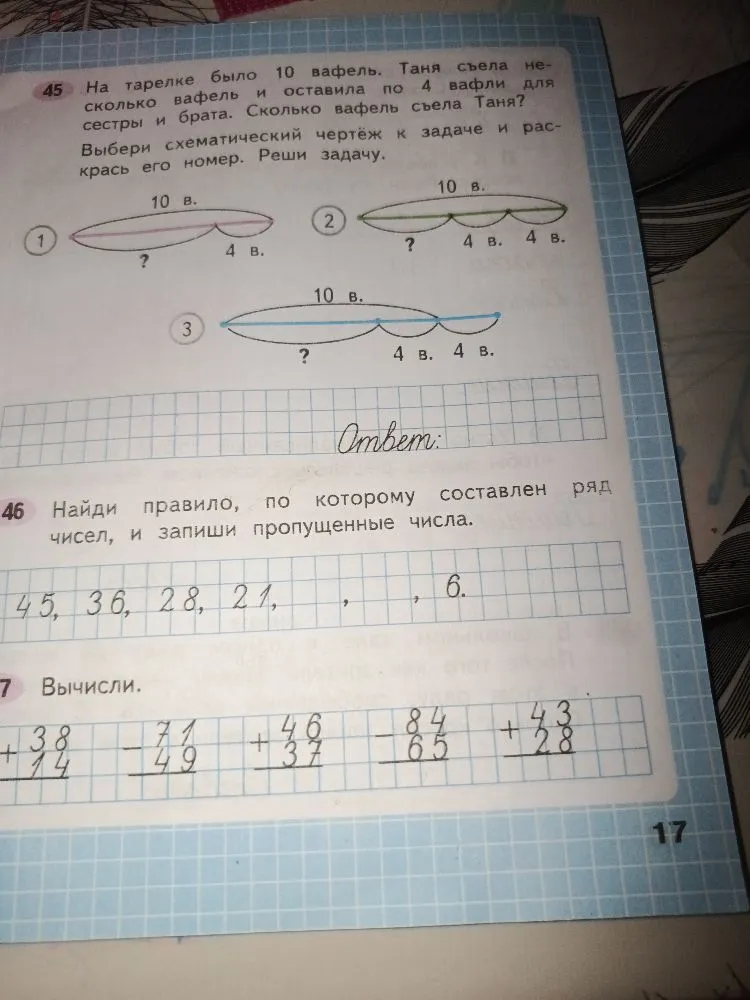 45 На тарелке было 10 вафель. Таня съела не-
сколько вафель и оставила по 4 вафли для
сестры и брата. Сколько вафель съела Таня?
Выбери схематический чертёж к задаче и рас-
крась его номер. Реши задачу.
10 в.
1
?
4 в.
10 в.
2
?
4 в.
4 в.
10 в.
3
?
4 в.
4 в.
Ответ:
46 Найди правило, по которому составлен ряд
чисел, и запиши пропущенные числа.
45, 36, 28, 21, , , 6.
7 Вычисли.
+ 38 - 71 + 46 - 84 + 43
14 49 37 65 28
17